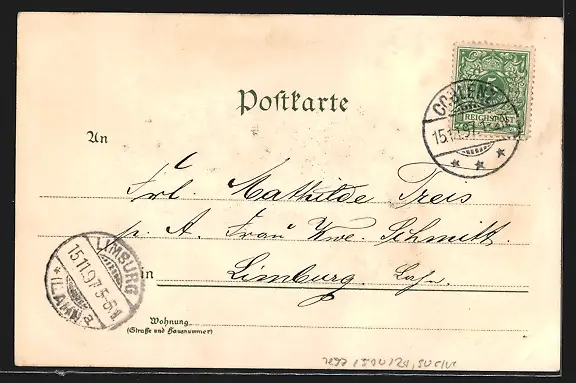 Postkarte
5
REICHSPOST
COBLENZ
15.11.97
An
Frl. Mathilde Treis
p. A. Frau Wwe. Schmitt.
in Limburg. Lahn.
LIMBURG
15.11.97 5-6N
* (LAHN) a
Wohnung
(Straße und Hausnummer)